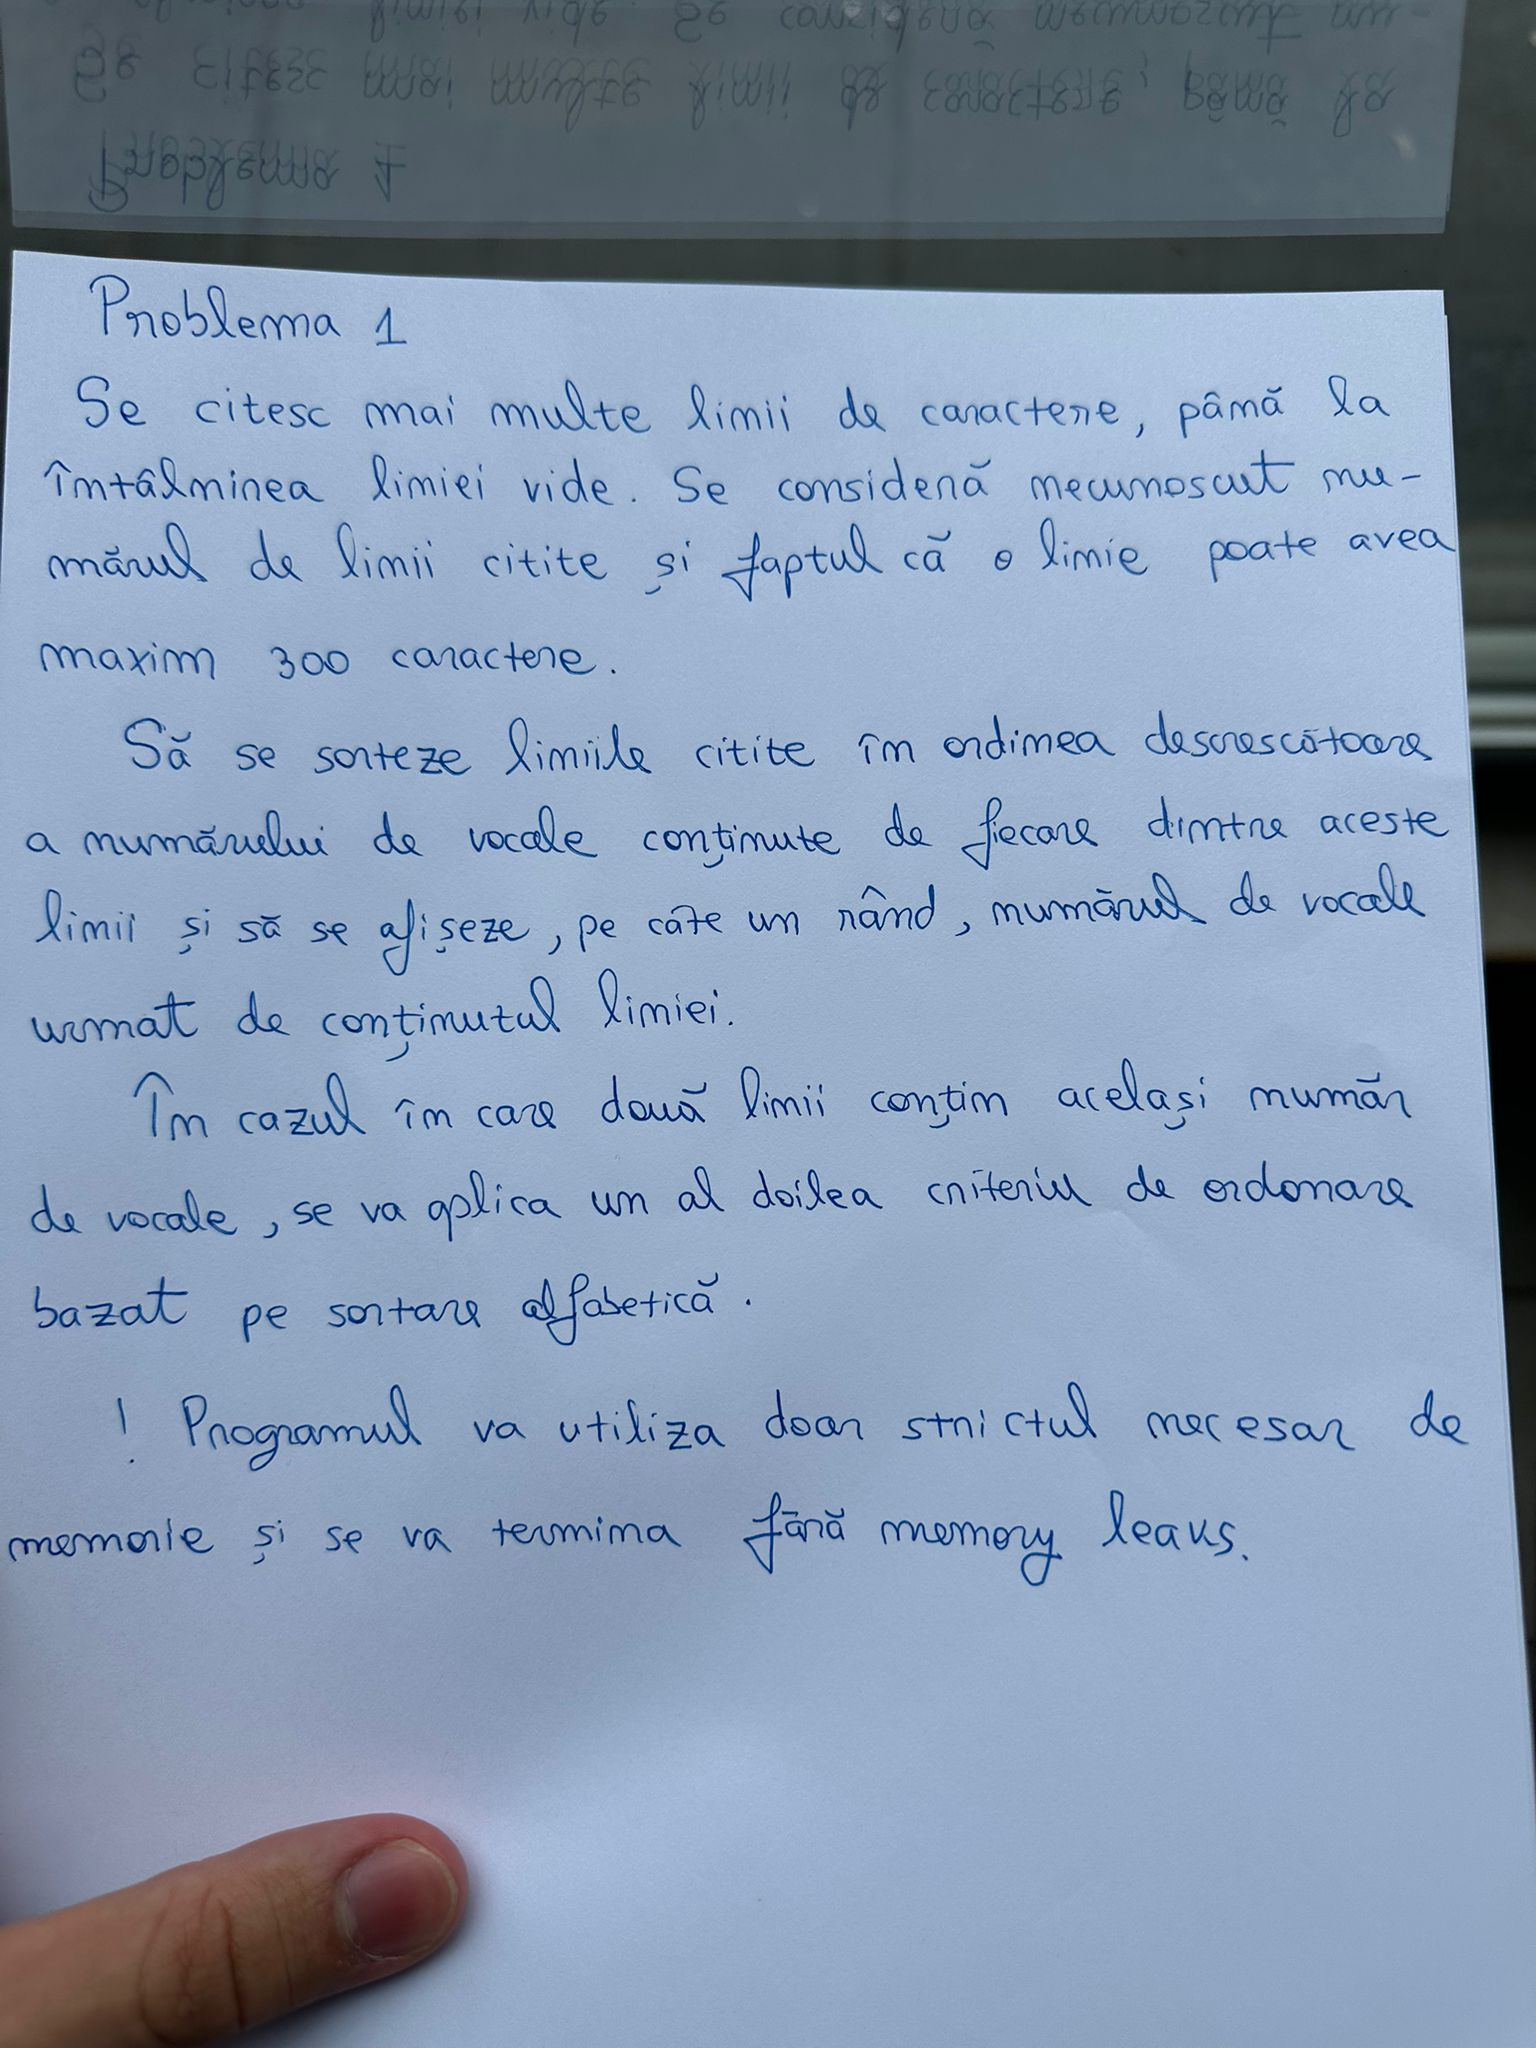 Problema 1
Se citesc mai multe linii de caractere, până la
întâlnirea liniei vide. Se consideră necunoscut nu-
mărul de linii citite și faptul că o linie poate avea
maxim 300 caractere.
Să se sorteze liniile citite în ordinea descrescătoare
a numărului de vocale conținute de fiecare dintre aceste
linii și să se afișeze, pe câte un rând, numărul de vocale
urmat de conținutul liniei.
În cazul în care două linii conțin același număr
de vocale, se va aplica un al doilea criteriu de ordonare
bazat pe sortare alfabetică.
! Programul va utiliza doar strictul necesar de
memorie și se va termina fără memory leaks.